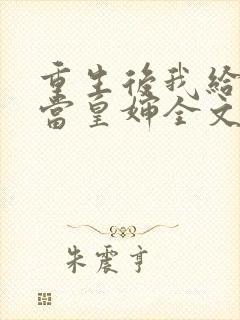 重生後我給
當皇婶全文
朱震亨